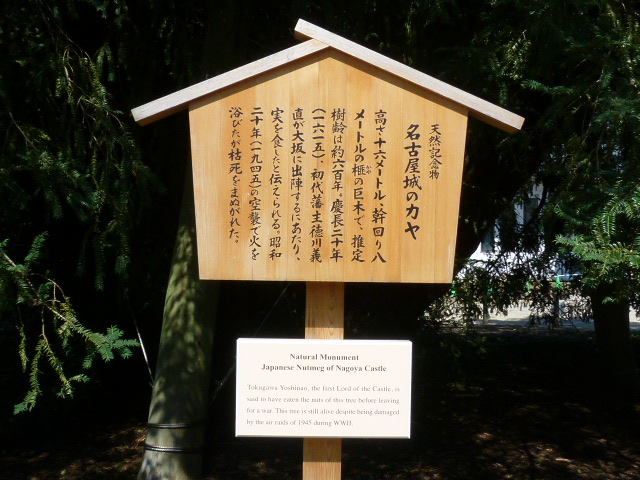 天然記念物
名古屋城のカヤ
高さ十六メートル、幹回り八
メートルの榧の巨木で、推定
樹齢は約六百年。慶長二十年
(一六一五)、初代藩主徳川義
直が大坂に出陣するにあたり、
実を食したと伝えられる。昭和
二十年(一九四五)の空襲で火を
浴びたが枯死をまぬがれた。
Natural Monument
Japanese Nutmeg of Nagoya Castle
Tokugawa Yoshinao, the first Lord of the Castle, is
said to have eaten the nuts of this tree before leaving
for a war. This tree is still alive despite being damaged
by the air raids of 1945 during WWII.